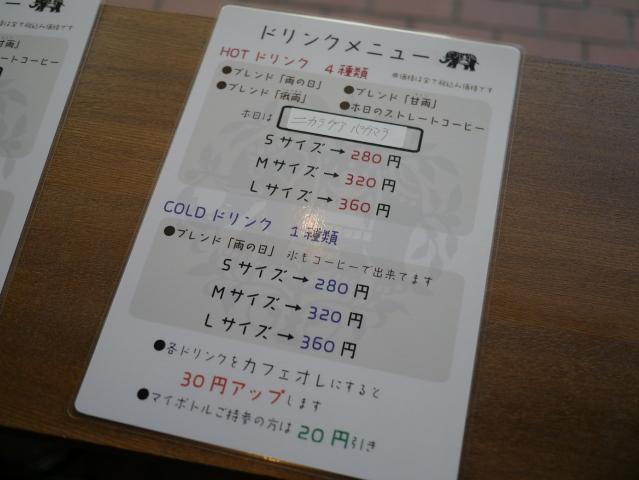 ドリンクメニュー
HOTドリンク 4種類
※価格は全て税込み価格です
●ブレンド「雨の日」
●ブレンド「甘雨」
●ブレンド「俄雨」
●本日のストレートコーヒー
本日は ニカラグア パカマラ
Sサイズ→280円
Mサイズ→320円
Lサイズ→360円
COLDドリンク 1種類
●ブレンド「雨の日」 氷もコーヒーで出来てます
Sサイズ→280円
Mサイズ→320円
Lサイズ→360円
●各ドリンクをカフェオレにすると
30円アップします
●マイボトルご持参の方は20円引き
ー
は全て税込み価格です
「甘雨」
ストレートコーヒー